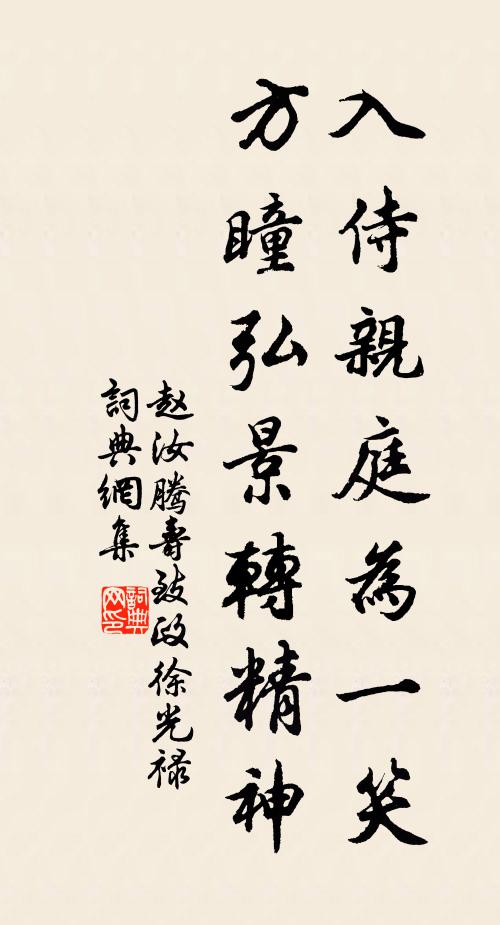 入侍親庭為一笑
方瞳弘景轉精神
赵汝騰壽致政徐光禄
詞典網集
詞典网印